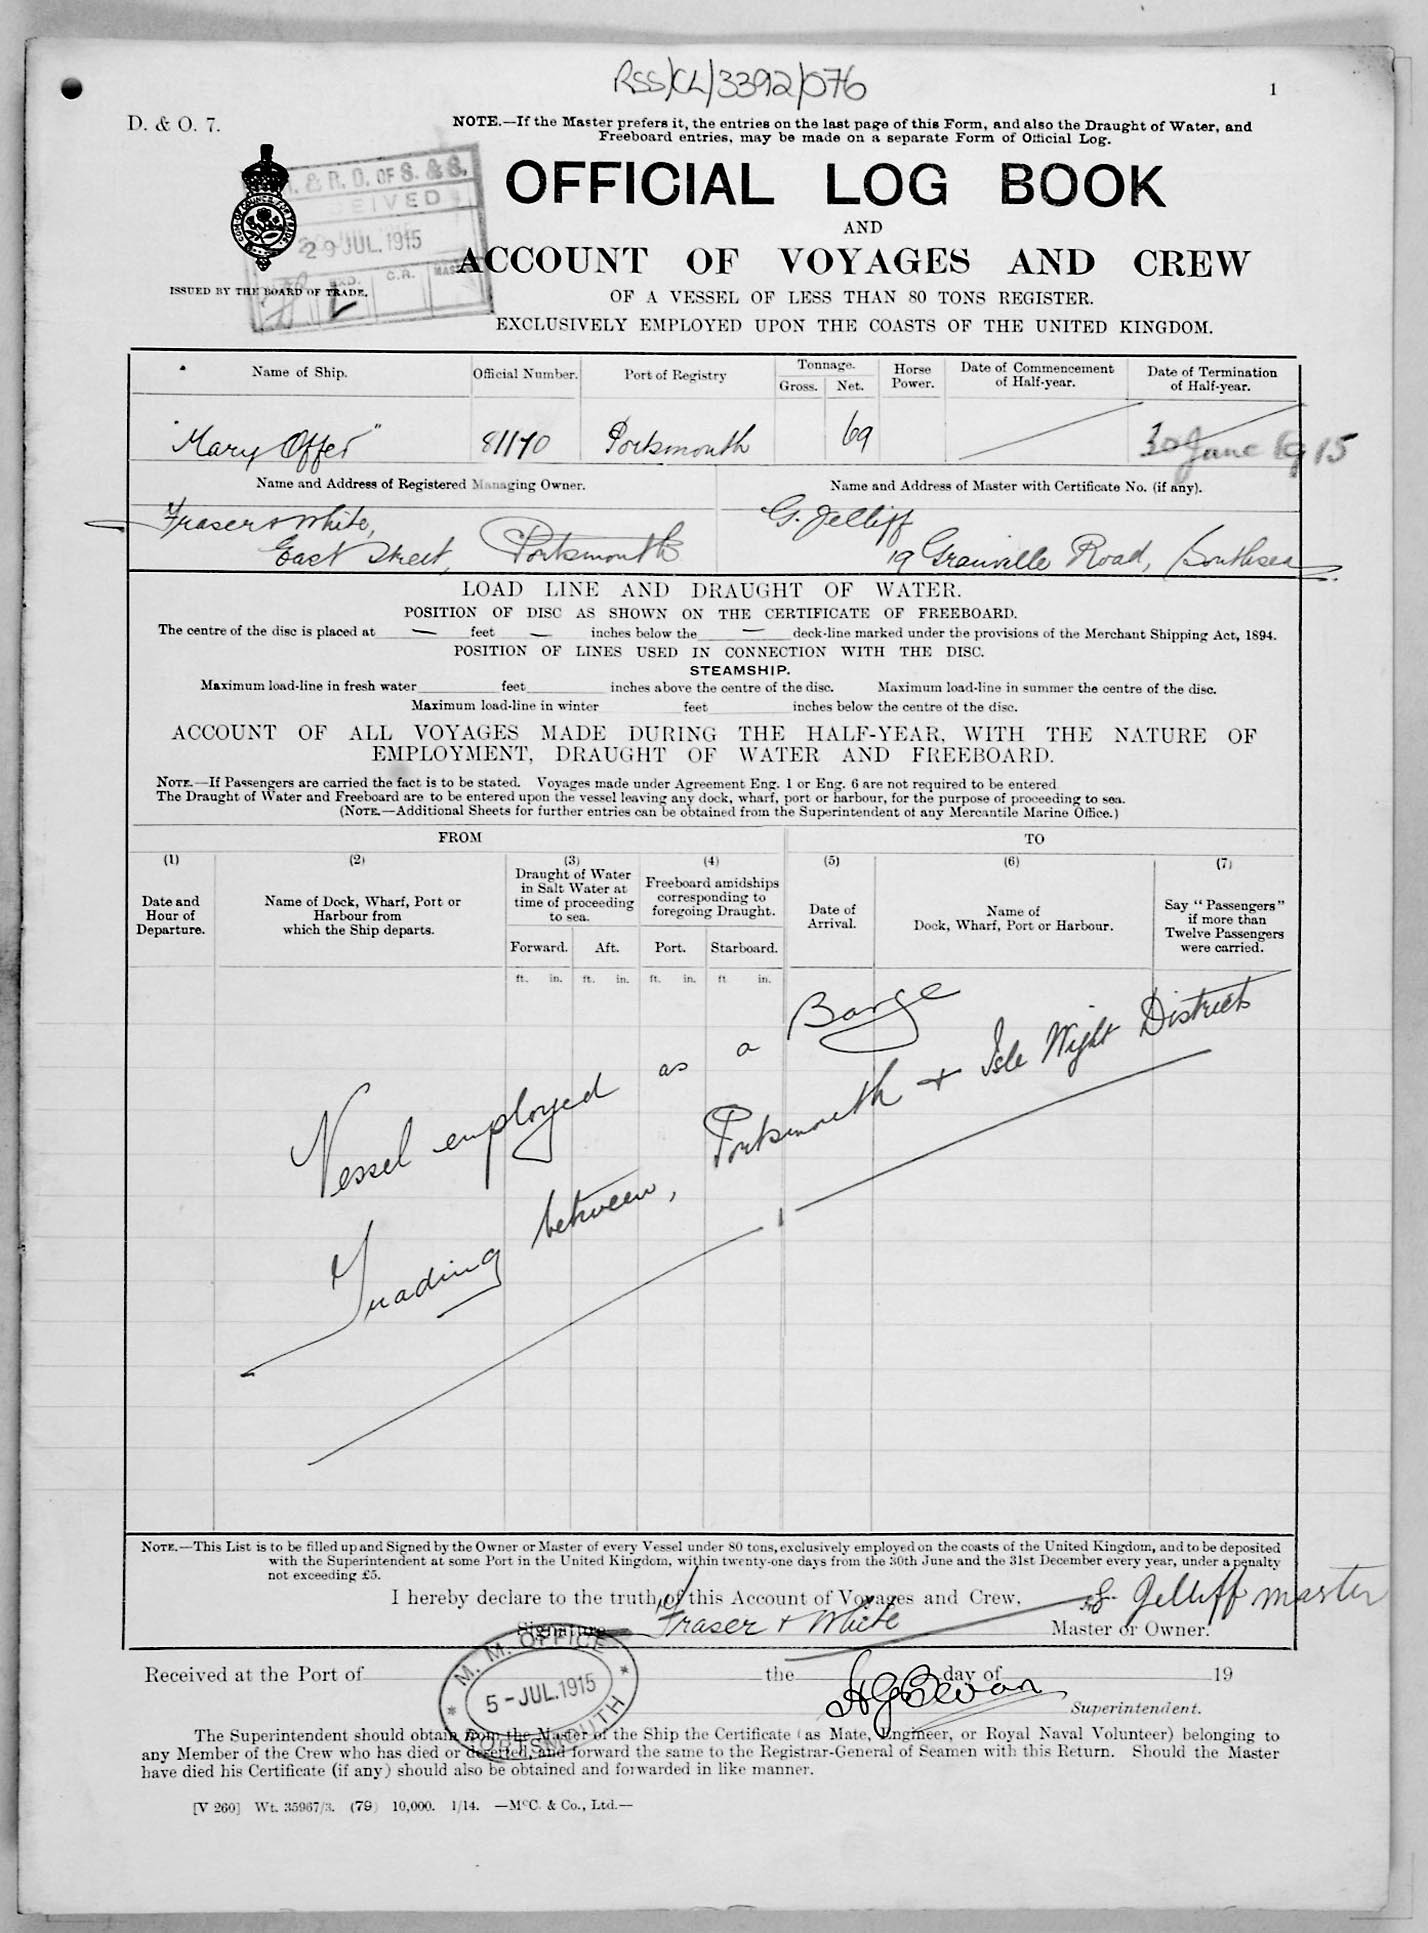 RSS/CL/3392/076
1
D. & O. 7.
NOTE.—If the Master prefers it, the entries on the last page of this Form, and also the Draught of Water, and
Freeboard entries, may be made on a separate Form of Official Log.
& R. O. OF S. & S.
RECEIVED
29 JUL. 1915
C.R.
OFFICIAL LOG BOOK
AND
ACCOUNT OF VOYAGES AND CREW
ISSUED BY THE BOARD OF TRADE.
OF A VESSEL OF LESS THAN 80 TONS REGISTER.
EXCLUSIVELY EMPLOYED UPON THE COASTS OF THE UNITED KINGDOM.
Name of Ship. Official Number. Port of Registry Tonnage. Gross. Net. Horse Power. Date of Commencement of Half-year. Date of Termination of Half-year.
"Mary Offer" 81170 Portsmouth 69 30 June 1915
Name and Address of Registered Managing Owner. Name and Address of Master with Certificate No. (if any).
Fraser & White, G. Jelliff
East Street, Portsmouth 19 Granville Road, Southsea
LOAD LINE AND DRAUGHT OF WATER.
POSITION OF DISC AS SHOWN ON THE CERTIFICATE OF FREEBOARD.
The centre of the disc is placed at — feet — inches below the — deck-line marked under the provisions of the Merchant Shipping Act, 1894.
POSITION OF LINES USED IN CONNECTION WITH THE DISC.
STEAMSHIP.
Maximum load-line in fresh water feet inches above the centre of the disc. Maximum load-line in summer the centre of the disc.
Maximum load-line in winter feet inches below the centre of the disc.
ACCOUNT OF ALL VOYAGES MADE DURING THE HALF-YEAR, WITH THE NATURE OF
EMPLOYMENT, DRAUGHT OF WATER AND FREEBOARD.
NOTE.—If Passengers are carried the fact is to be stated. Voyages made under Agreement Eng. 1 or Eng. 6 are not required to be entered
The Draught of Water and Freeboard are to be entered upon the vessel leaving any dock, wharf, port or harbour, for the purpose of proceeding to sea.
(NOTE.—Additional Sheets for further entries can be obtained from the Superintendent of any Mercantile Marine Office.)
FROM TO
(1) (2) (3) (4) (5) (6) (7)
Date and Hour of Departure.
Name of Dock, Wharf, Port or Harbour from which the Ship departs.
Draught of Water in Salt Water at time of proceeding to sea.
Freeboard amidships corresponding to foregoing Draught.
Date of Arrival.
Name of Dock, Wharf, Port or Harbour.
Say "Passengers" if more than Twelve Passengers were carried.
Forward. Aft. Port. Starboard.
ft. in. ft. in. ft. in. ft in.
Vessel employed as a Barge
Trading between, Portsmouth + Isle Wight Districts
NOTE.—This List is to be filled up and Signed by the Owner or Master of every Vessel under 80 tons, exclusively employed on the coasts of the United Kingdom, and to be deposited
with the Superintendent at some Port in the United Kingdom, within twenty-one days from the 30th June and the 31st December every year, under a penalty
not exceeding £5.
I hereby declare to the truth of this Account of Voyages and Crew,
Signature Fraser & White G. Jelliff master
Master or Owner.
M. M. OFFICE
5-JUL.1915
PORTSMOUTH
Received at the Port of the day of 19
Superintendent.
The Superintendent should obtain from the Master of the Ship the Certificate (as Mate, Engineer, or Royal Naval Volunteer) belonging to
any Member of the Crew who has died or deserted, and forward the same to the Registrar-General of Seamen with this Return. Should the Master
have died his Certificate (if any) should also be obtained and forwarded in like manner.
[V 260] Wt. 35967/3. (79) 10,000. 1/14. —McC. & Co., Ltd.—